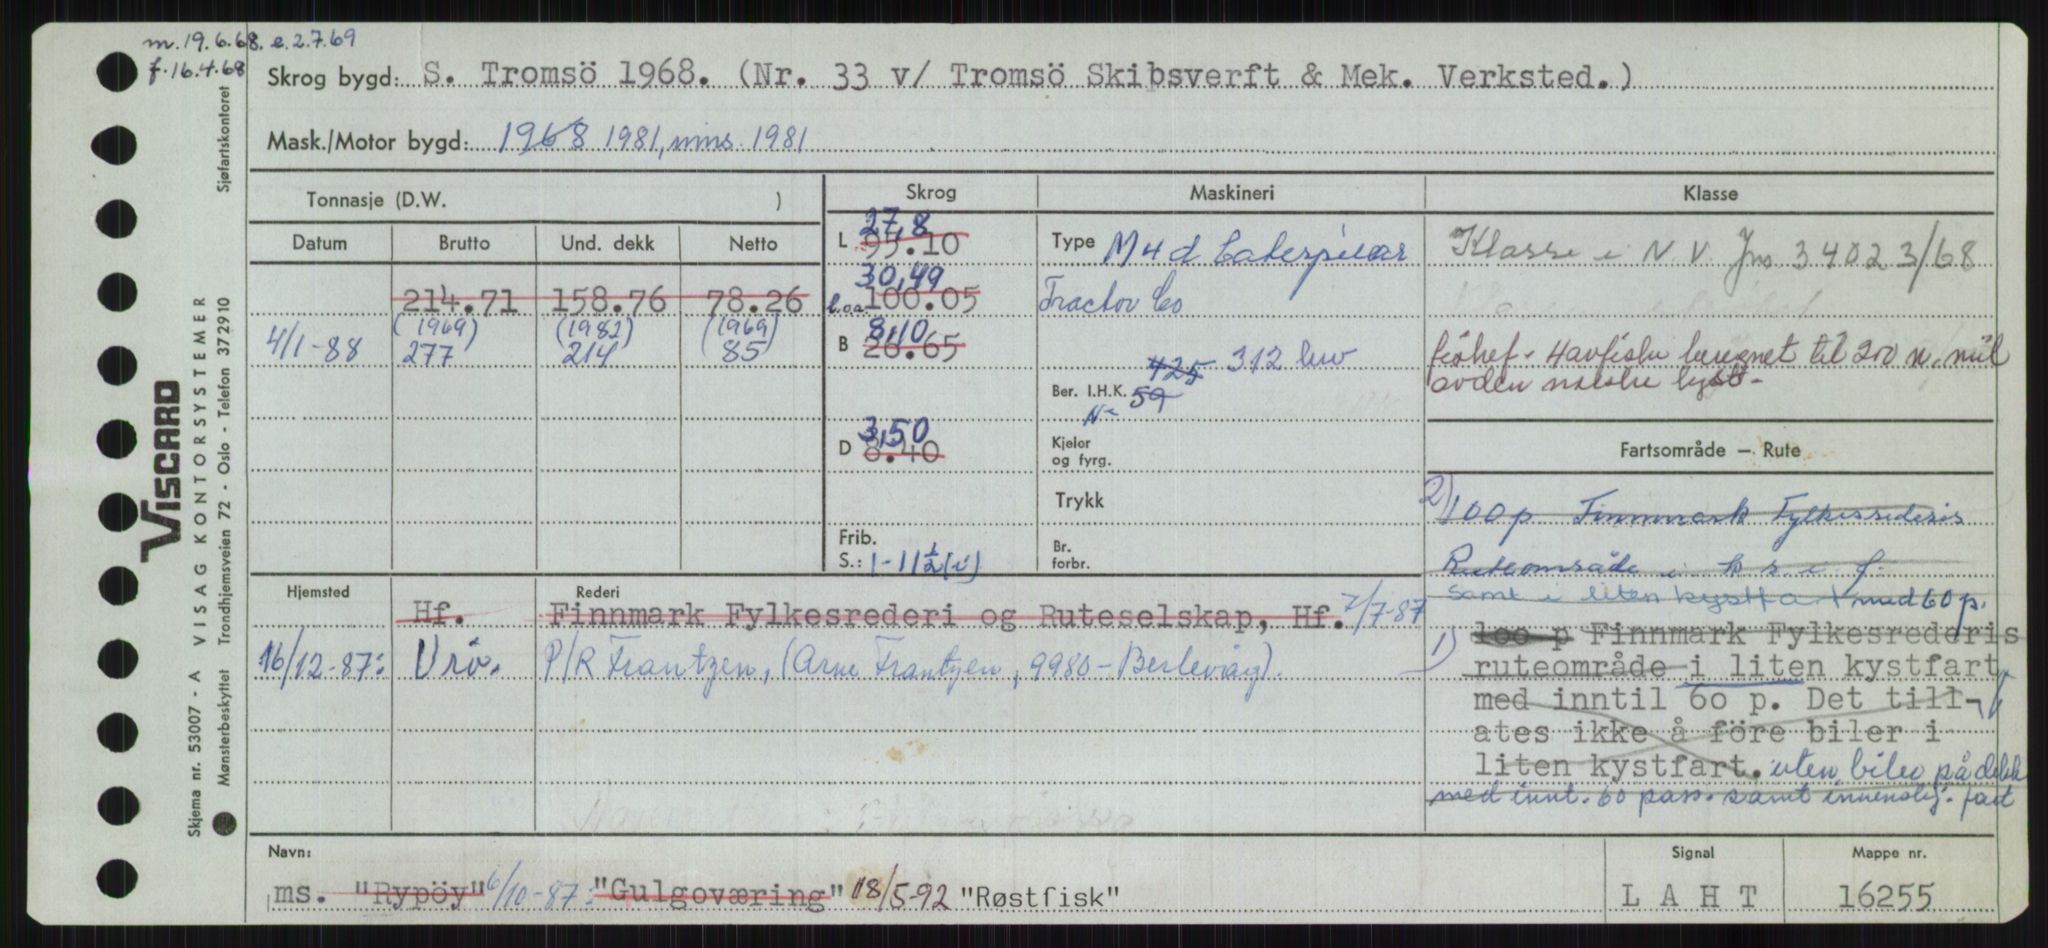 m. 19.6.68. e. 2.7.69
f. 16.4.68
Skrog bygd: S. Tromsö 1968. (Nr. 33 v/ Tromsö Skibsverft & Mek. Verksted.)
Mask./Motor bygd: 1968 1981, inns. 1981
Tonnasje (D.W. )
Skrog
Maskineri
Klasse
Datum Brutto Und. dekk Netto
214.71 158.76 78.26
(1969) (1982) (1969)
4/1-88 277 214 85
27,8
L 95.10
30,49
l.o.a. 100.05
8,10
B 26.65
3,50
D 8.40
Frib.
S.: 1-11 1/2 (i)
Type M 4 d Caterpillar
Tractor Co
425 312 kw
Ber. I.H.K. 59
N
Kjeler
og fyrg.
Trykk
Br.
forbr.
Klasse i N.V. Jno 34023/68
fishef. Havfiske beregnet til 200 n. mil
av den norske kyst-
Fartsområde — Rute
2) 100 p Finnmark Fylkesrederis
Ruteområde i
samt i liten kystfart med 60 p.
1) 100 p Finnmark Fylkesrederis
ruteområde i liten kystfart
med inntil 60 p. Det till-
ates ikke å före biler i
liten kystfart. uten biler på dekk
med innt. 60 pass. samt innenskj. fart
Hjemsted Rederi
Hf. Finnmark Fylkesrederi og Ruteselskap, Hf. 7/7-87
16/12-87: Vrö. P/R Frantzen, (Arne Frantzen, 9980-Berlevåg).
Navn:
ms. "Rypöy" 6/10-87: "Gulgoværing" 18/5-92 "Røstfisk"
Signal
L A H T
Mappe nr.
16255
VISCARD
VISAG KONTORSYSTEMER
Skjema nr. 53007 - A
Mønsterbeskyttet Trondhjemsveien 72 - Oslo - Telefon 372910
Sjøfartskontoret